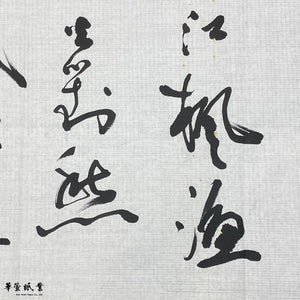 江楓漁
火對愁
華萱紙業